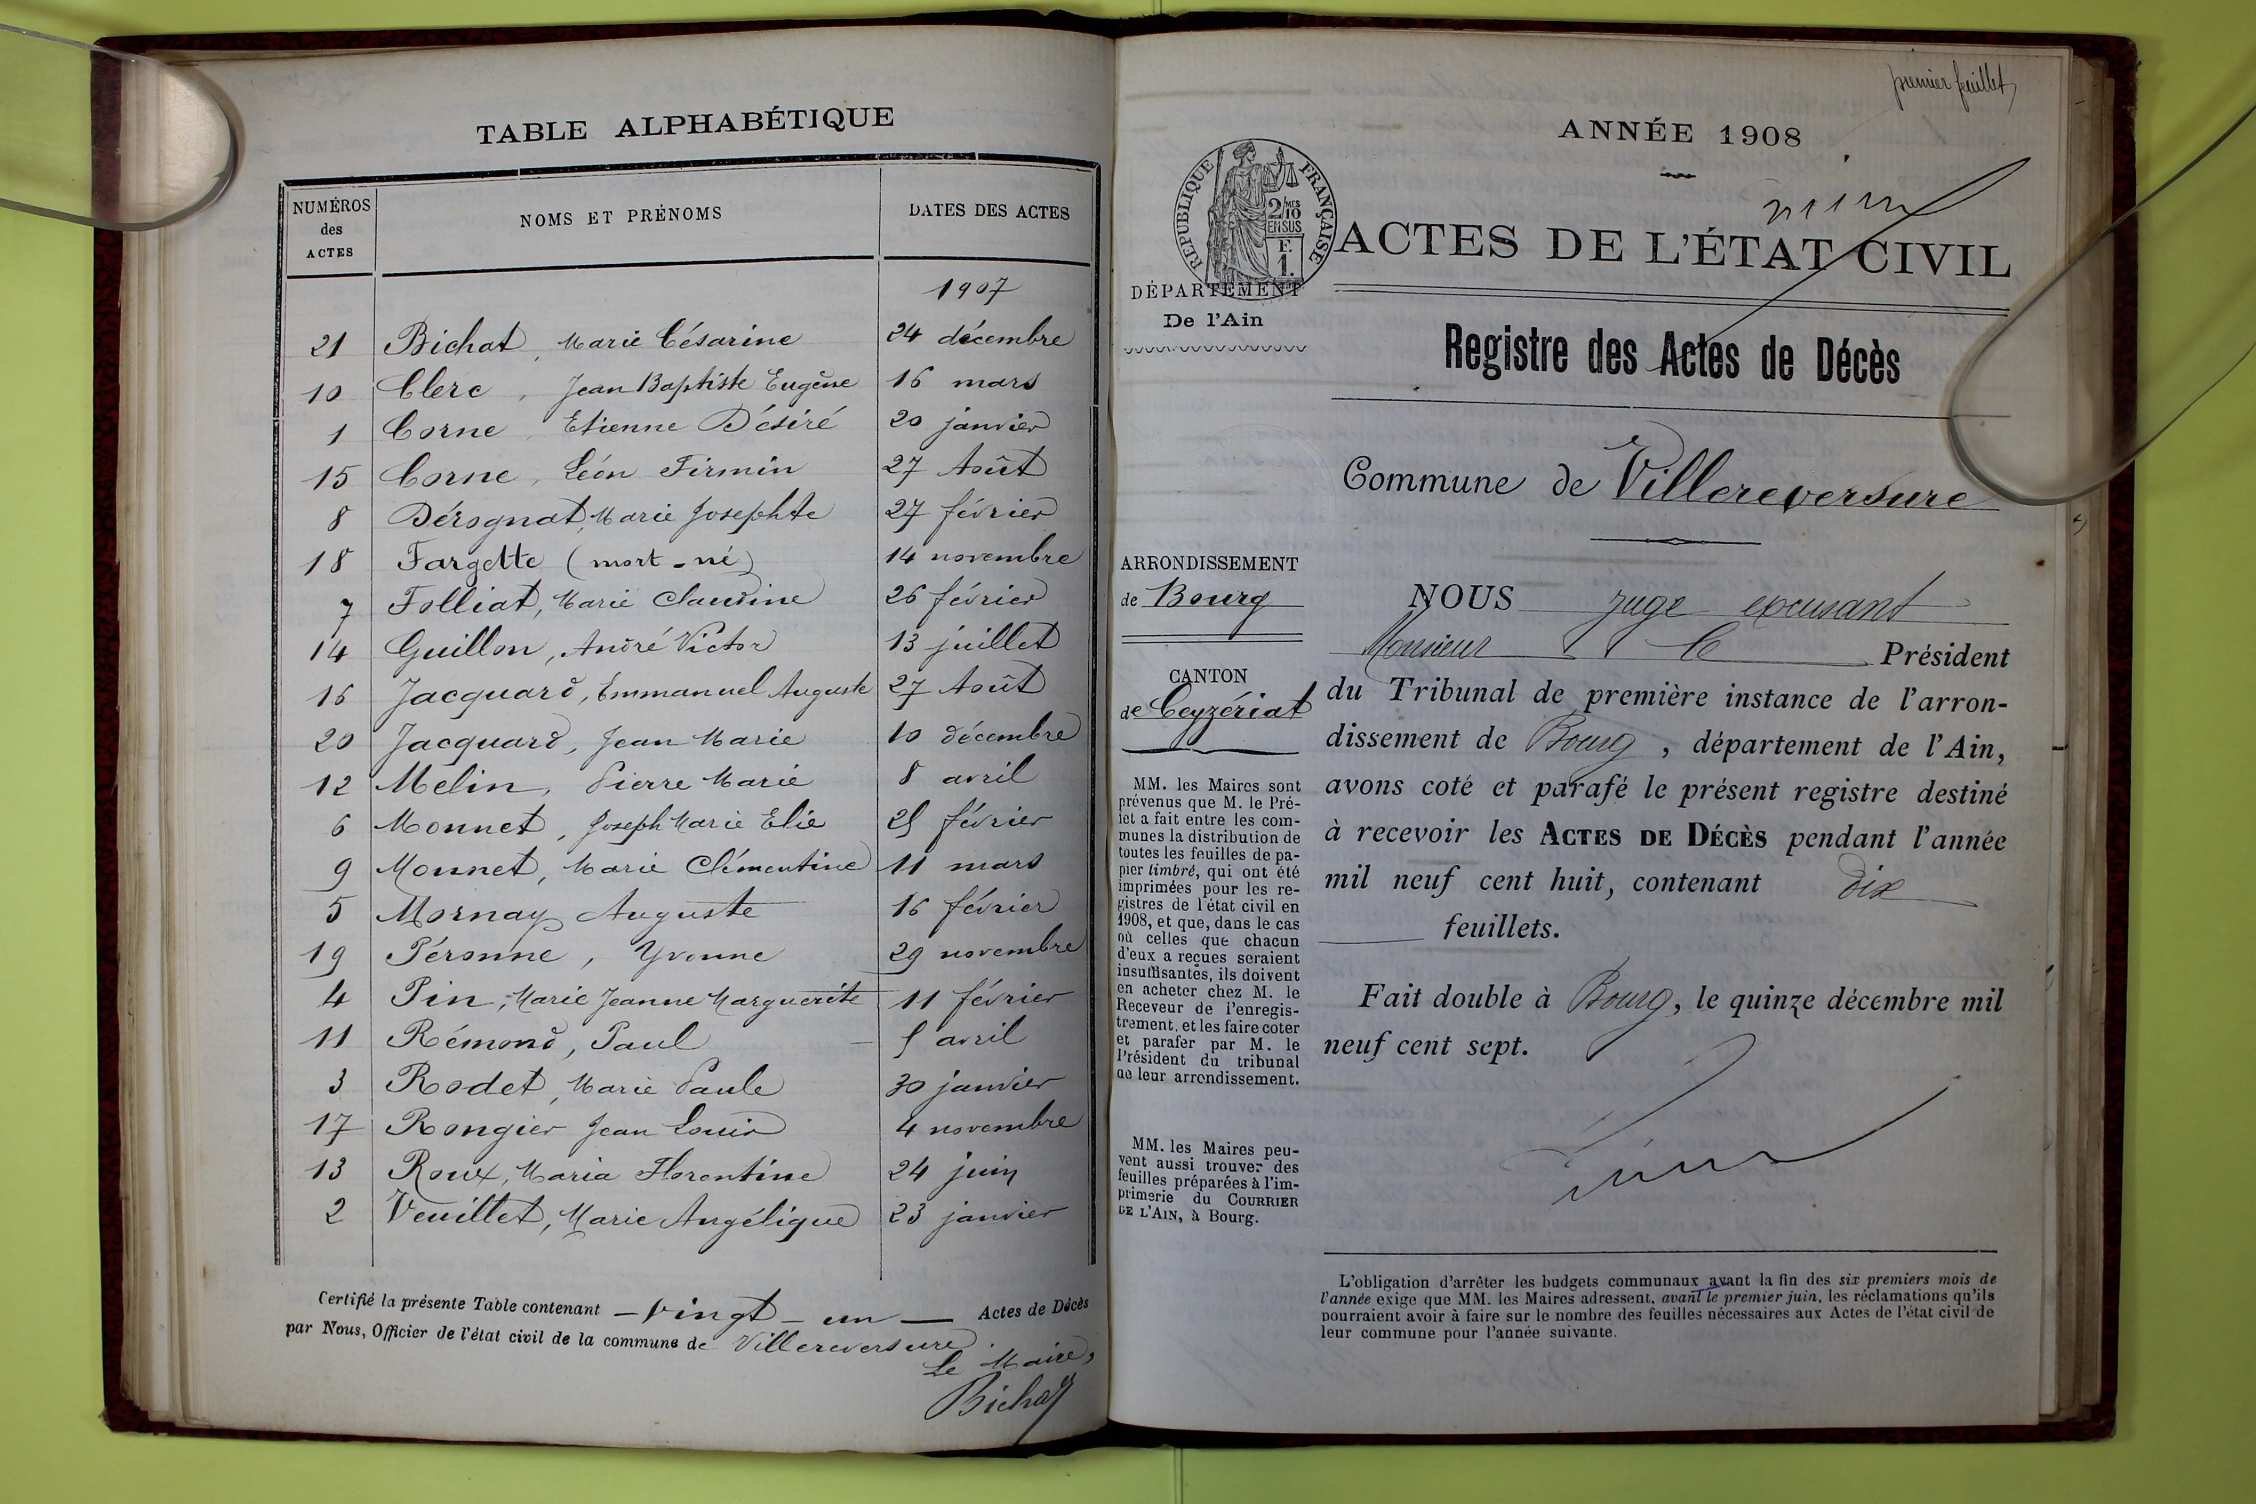 TABLE ALPHABÉTIQUE
NUMÉROS des ACTES NOMS ET PRÉNOMS DATES DES ACTES
1907
21 Bichat, Marie Césarine 24 décembre
10 Clerc, Jean Baptiste Eugène 16 mars
1 Corne, Etienne Désiré 20 janvier
15 Corne, Léon Firmin 27 Août
8 Dérognat, Marie Josephte 27 février
18 Fargette (mort-né) 14 novembre
7 Folliat, Marie Claudine 26 février
14 Guillon, André Victor 13 juillet
16 Jacquard, Emmanuel Auguste 27 Août
20 Jacquard, Jean Marie 10 décembre
12 Melin, Pierre Marie 8 avril
6 Monnet, Joseph Marie Elie 25 février
9 Monnet, Marie Clémentine 11 mars
5 Mornay Auguste 16 février
19 Péronne, Yvonne 29 novembre
4 Pin, Marie Jeanne Marguerite 11 février
11 Rémond, Paul 5 avril
3 Rodet, Marie Paule 30 janvier
17 Rongier Jean Louis 4 novembre
13 Roux, Maria Florentine 24 juin
2 Veuillet, Marie Angélique 23 janvier
Certifié la présente Table contenant — vingt-un — Actes de Décès
par Nous, Officier de l'état civil de la commune de Villereversure
Le Maire,
Bichat
premier feuillet
ANNÉE 1908
RÉPUBLIQUE FRANÇAISE
2/10 MES
EN SUS
F.
1.
ACTES DE L'ÉTAT CIVIL
DÉPARTEMENT
De l'Ain
Registre des Actes de Décès
Commune de Villereversure
ARRONDISSEMENT
de Bourg
CANTON
de Ceyzériat
MM. les Maires sont
prévenus que M. le Pré-
fet a fait entre les com-
munes la distribution de
toutes les feuilles de pa-
pier timbré, qui ont été
imprimées pour les re-
gistres de l'état civil en
1908, et que, dans le cas
où celles que chacun
d'eux a reçues seraient
insuffisantes, ils doivent
en acheter chez M. le
Receveur de l'enregis-
trement, et les faire coter
et parafer par M. le
Président du tribunal
de leur arrondissement.
MM. les Maires peu-
vent aussi trouver des
feuilles préparées à l'im-
primerie du COURRIER
DE L'AIN, à Bourg.
NOUS juge excusant
Monsieur le Président
du Tribunal de première instance de l'arron-
dissement de Bourg, département de l'Ain,
avons coté et parafé le présent registre destiné
à recevoir les ACTES DE DÉCÈS pendant l'année
mil neuf cent huit, contenant dix
feuillets.
Fait double à Bourg, le quinze décembre mil
neuf cent sept.
L'obligation d'arrêter les budgets communaux avant la fin des six premiers mois de
l'année exige que MM. les Maires adressent, avant le premier juin, les réclamations qu'ils
pourraient avoir à faire sur le nombre des feuilles nécessaires aux Actes de l'état civil de
leur commune pour l'année suivante.